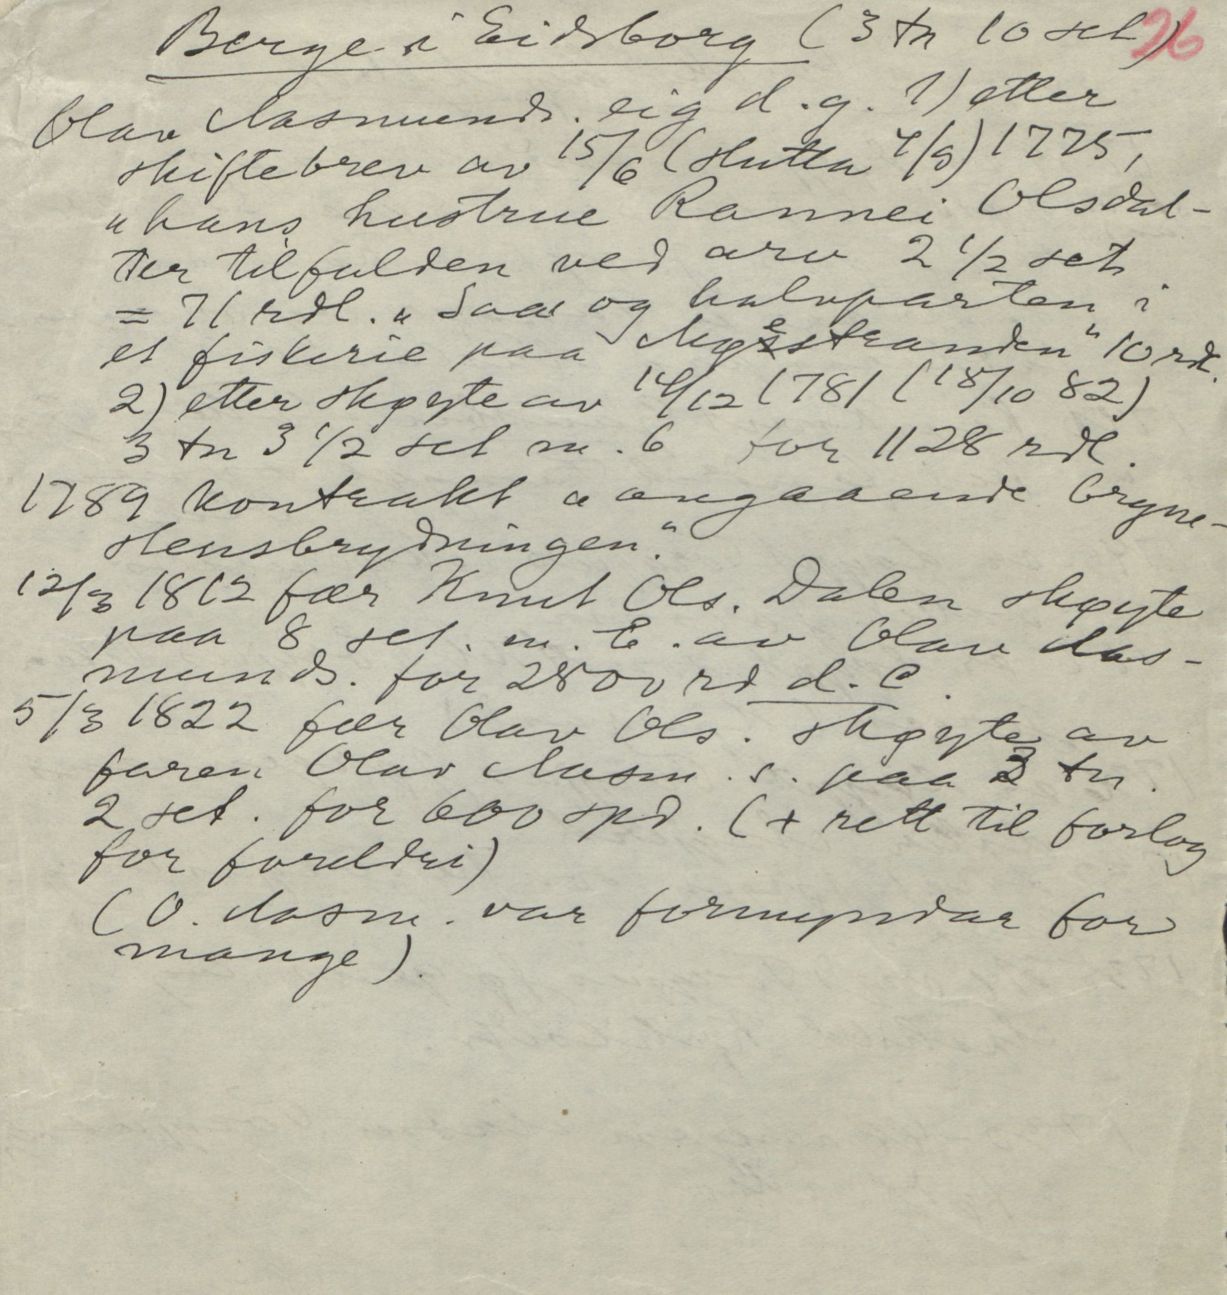 Berge i Eidsborg (3 tn 10 set) 26
Olav Aasmunds. eig d.g. 1) etter
skiftebrev av 15/6 (slutta 4/9) 1775,
"hans hustrue Rannei Olsdal-
ter tilfalden ved arv 2 1/2 set
= 71 rdl. " Saa og halvparten i
et fiskerie paa Møsstranden" 10 rd.
2) etter skøyte av 14/12 1781 (18/10 82)
3 tn 3 1/2 set m. 6 for 1128 rdl.
1789 kontrakt "angaaende bryne-
stensbrydningen."
12/3 1812 fær Knut Ols. Dalen skøyte
paa 8 set. m. E. av Olav Aas-
munds. for 2800 rd d.C.
5/3 1822 fær Olav Ols. skøyte av
faren Olav Aasm.s. paa 3 tn.
2 set. for 600 spd. (+ rett til forlog
for foreldri)
(O. Aasm. var formyndar for
mange).